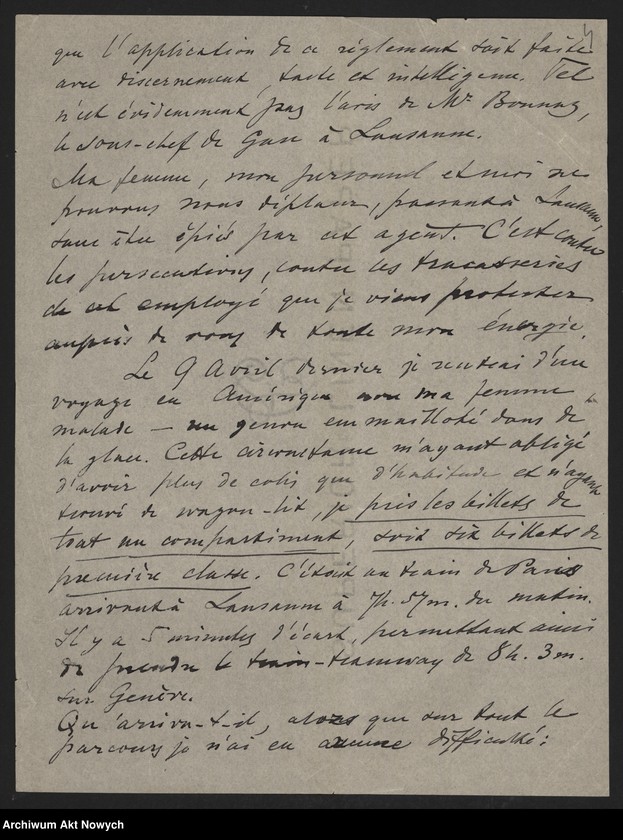 4
que l'application de ce règlement soit faite
avec discernement, tacte et intelligence. Tel
n'est évidemment pas l'avis de Mr Bonnaz,
le sous-chef de Gare à Lausanne.
Ma femme, mon personnel et moi ne
pouvons nous déplacer, passant à Lausanne
sans être épiés par cet agent. C'est contre
les persecutions, contre les tracasseries
de cet employé que je viens protester
auprès de vous de toute mon énergie.
Le 9 Avril dernier je rentrai d'un
voyage en Amérique avec ma femme
malade — un genou emmailloté dans de
la glace. Cette circonstance m'ayant obligé
d'avoir plus de colis que d'habitude et n'ayant
trouvé de wagon-lit, je pris les billets de
tout un compartiment, soit six billets de
première classe. C'était au train de Paris
arrivant à Lausanne à 7h. 57m. du matin.
Il y a 5 minutes d'écart, permettant ainsi
de prendre le train-tramway de 8h. 3m.
sur Genève.
Qu'arriva-t-il, alors que sur tout le
parcours je n'ai eu aucune difficulté:
Archiwum Akt Nowych